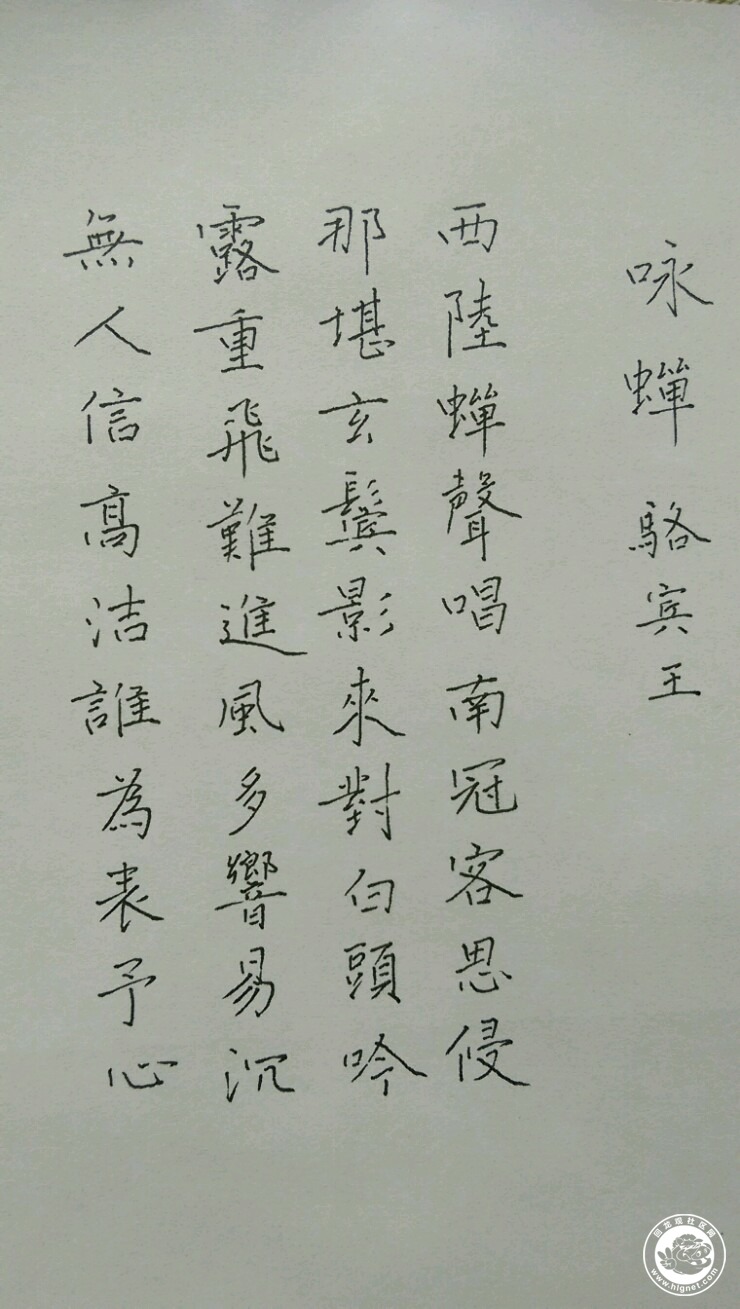 咏蟬 駱賓王
西陸蟬聲唱南冠客思侵
那堪玄鬓影來對白頭吟
露重飛難進風多響易沉
無人信高洁誰為表予心
回龙观社区网
www.hlgnet.com